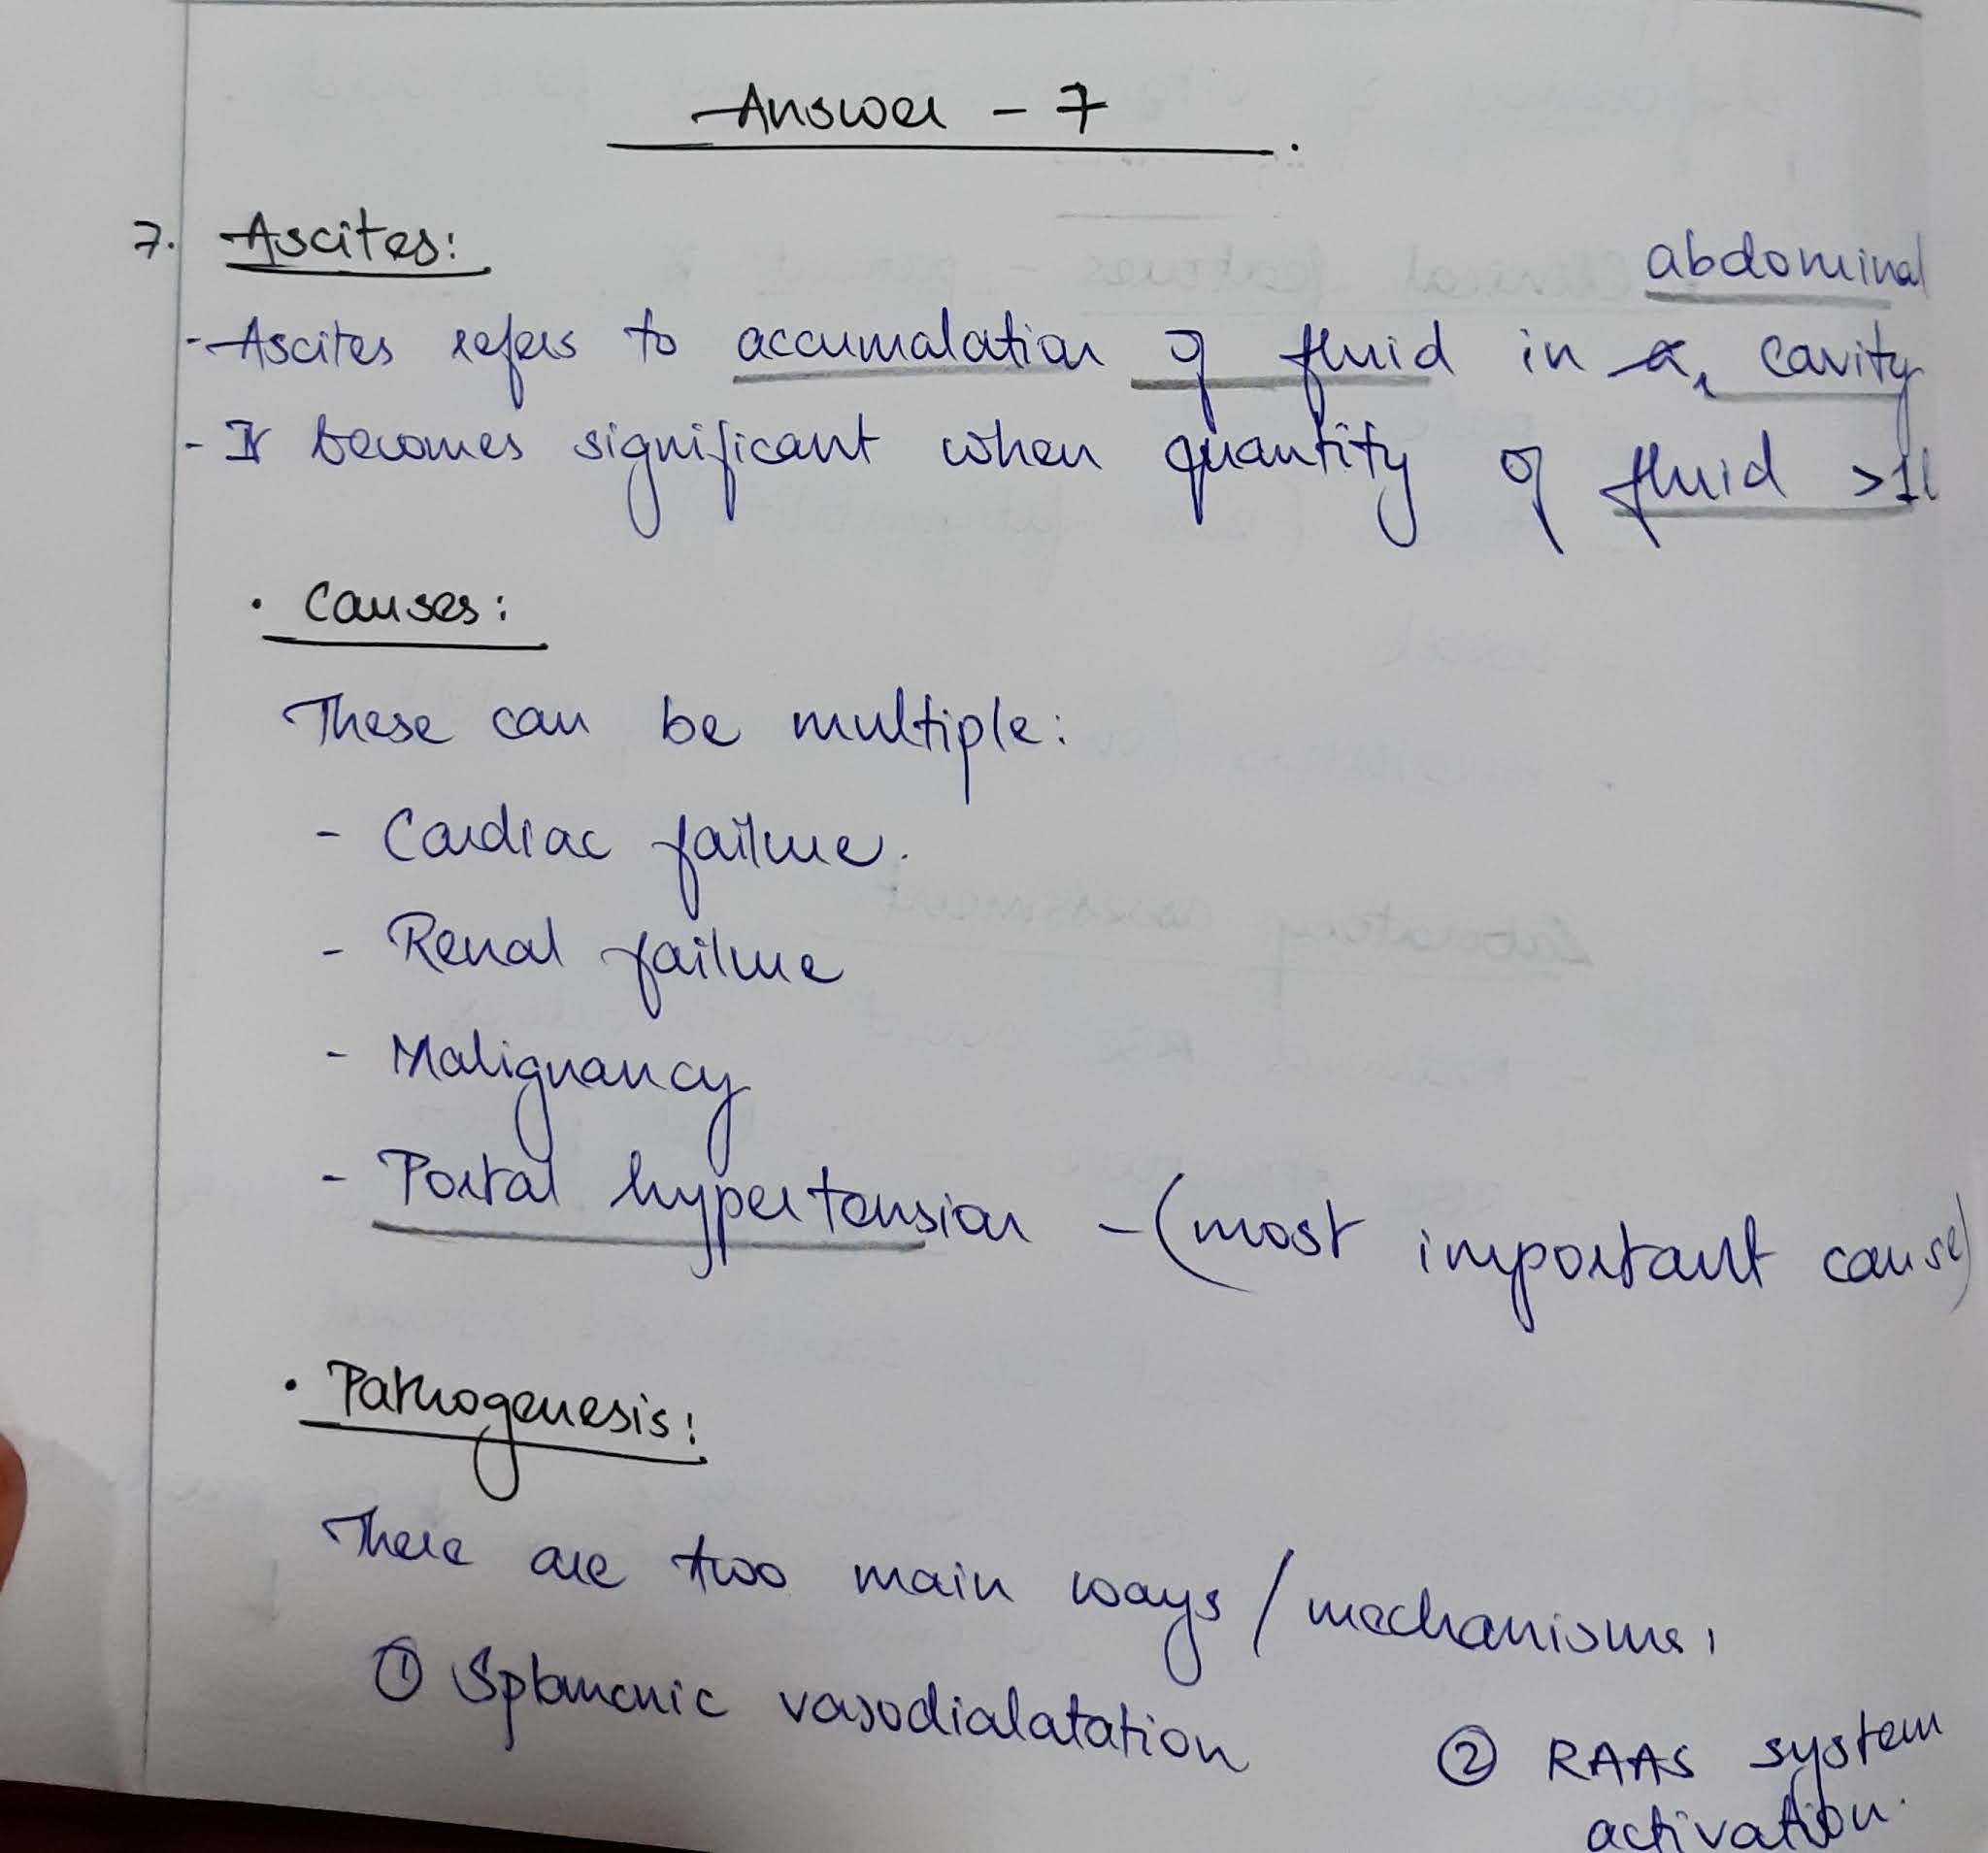 Answer - 7
7. Ascites:
abdominal
- Ascites refers to accumalation of fluid in a cavity
- It becomes significant when quantity of fluid >1l
• Causes:
These can be multiple:
- Cardiac failure.
- Renal failure
- Malignancy
- Portal hypertension - (most important cause)
• Pathogenesis:
There are two main ways / mechanisms:
① Splancnic vasodialatation
② RAAS system
activation.